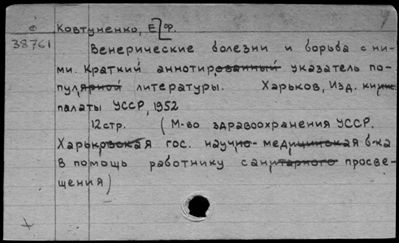 Ковтуненко, Е. Ф.
38761
Венерические болезни и борьба с ни-
ми. Краткий аннотированный указатель по-
пулярной литературы. Харьков, Изд. книж.
палаты УССР, 1952
12 стр. (М-во здравоохранения УССР.
Харьковская гос. научно-медицинская б-ка
В помощь работнику санитарного просве-
щения)